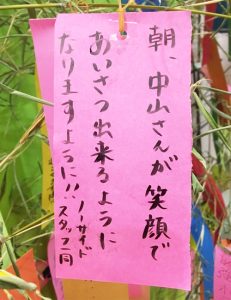 朝、中山さんが笑顔で
あいさつ出来るように
なりますように!!
ノーサイド
スタッフ一同